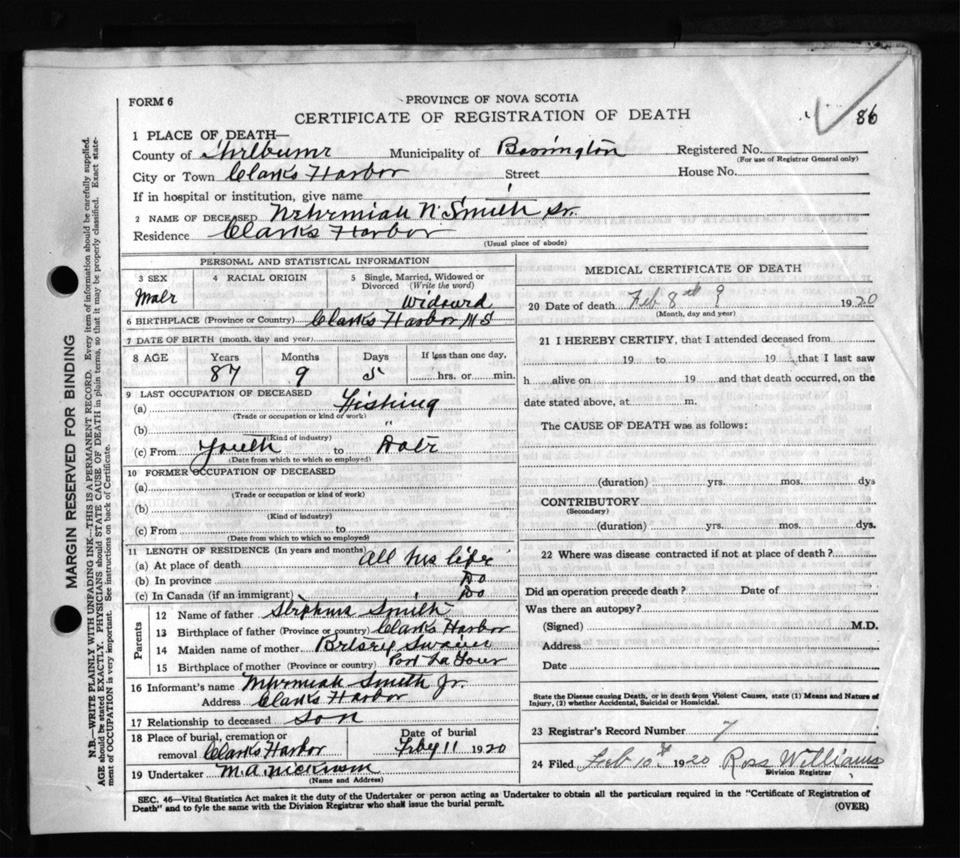 FORM 6
PROVINCE OF NOVA SCOTIA
CERTIFICATE OF REGISTRATION OF DEATH
86
1 PLACE OF DEATH—
County of Shelburne Municipality of Barrington Registered No.
(For use of Registrar General only)
City or Town Clarks Harbor Street House No.
If in hospital or institution, give name
2 NAME OF DECEASED Nehemiah N. Smith Sr.
Residence Clarks Harbor
(Usual place of abode)
PERSONAL AND STATISTICAL INFORMATION
3 SEX 4 RACIAL ORIGIN 5 Single, Married, Widowed or Divorced (Write the word)
Male Widowed
6 BIRTHPLACE (Province or Country) Clarks Harbor, N S
7 DATE OF BIRTH (month, day and year)
8 AGE Years Months Days If less than one day,
87 9 5 hrs. or min.
9 LAST OCCUPATION OF DECEASED
(a) Fishing
(Trade or occupation or kind of work)
(b) "
(Kind of industry)
(c) From Youth to Date
(Date from which to which so employed)
10 FORMER OCCUPATION OF DECEASED
(a)
(Trade or occupation or kind of work)
(b)
(Kind of industry)
(c) From to
(Date from which to which so employed)
11 LENGTH OF RESIDENCE (In years and months)
(a) At place of death All his life
(b) In province Do
(c) In Canada (if an immigrant) Do
Parents
12 Name of father Stephens Smith
13 Birthplace of father (Province or country) Clarks Harbor
14 Maiden name of mother Betsey Swaine
15 Birthplace of mother (Province or country) Port La Tour
16 Informant's name Nehemiah Smith Jr.
Address Clarks Harbor
17 Relationship to deceased Son
18 Place of burial, cremation or removal Clarks Harbor Date of burial Feby 11 1920
19 Undertaker M. A. Nickerson
(Name and Address)
MEDICAL CERTIFICATE OF DEATH
20 Date of death Feb 8th 9 1920
(Month, day and year)
21 I HEREBY CERTIFY, that I attended deceased from
19 to 19, that I last saw
h alive on 19 and that death occurred, on the
date stated above, at m.
The CAUSE OF DEATH was as follows:
(duration) yrs. mos. dys
CONTRIBUTORY
(Secondary)
(duration) yrs. mos. dys.
22 Where was disease contracted if not at place of death?
Did an operation precede death? Date of
Was there an autopsy?
(Signed) M.D.
Address
Date
State the Disease causing Death, or in death from Violent Causes, state (1) Means and Nature of
Injury, (2) whether Accidental, Suicidal or Homicidal.
23 Registrar's Record Number 7
24 Filed Feb 10th 1920 Ross Williams
Division Registrar
SEC. 46—Vital Statistics Act makes it the duty of the Undertaker or person acting as Undertaker to obtain all the particulars required in the "Certificate of Registration of
Death" and to fyle the same with the Division Registrar who shall issue the burial permit.
(OVER)
MARGIN RESERVED FOR BINDING
N.B.—WRITE PLAINLY WITH UNFADING INK—THIS IS A PERMANENT RECORD. Every item of information should be carefully supplied.
AGE should be stated EXACTLY. PHYSICIANS should STATE CAUSE OF DEATH in plain terms, so that it may be properly classified. Exact state-
ment of OCCUPATION is very important. See instructions on back of Certificate.